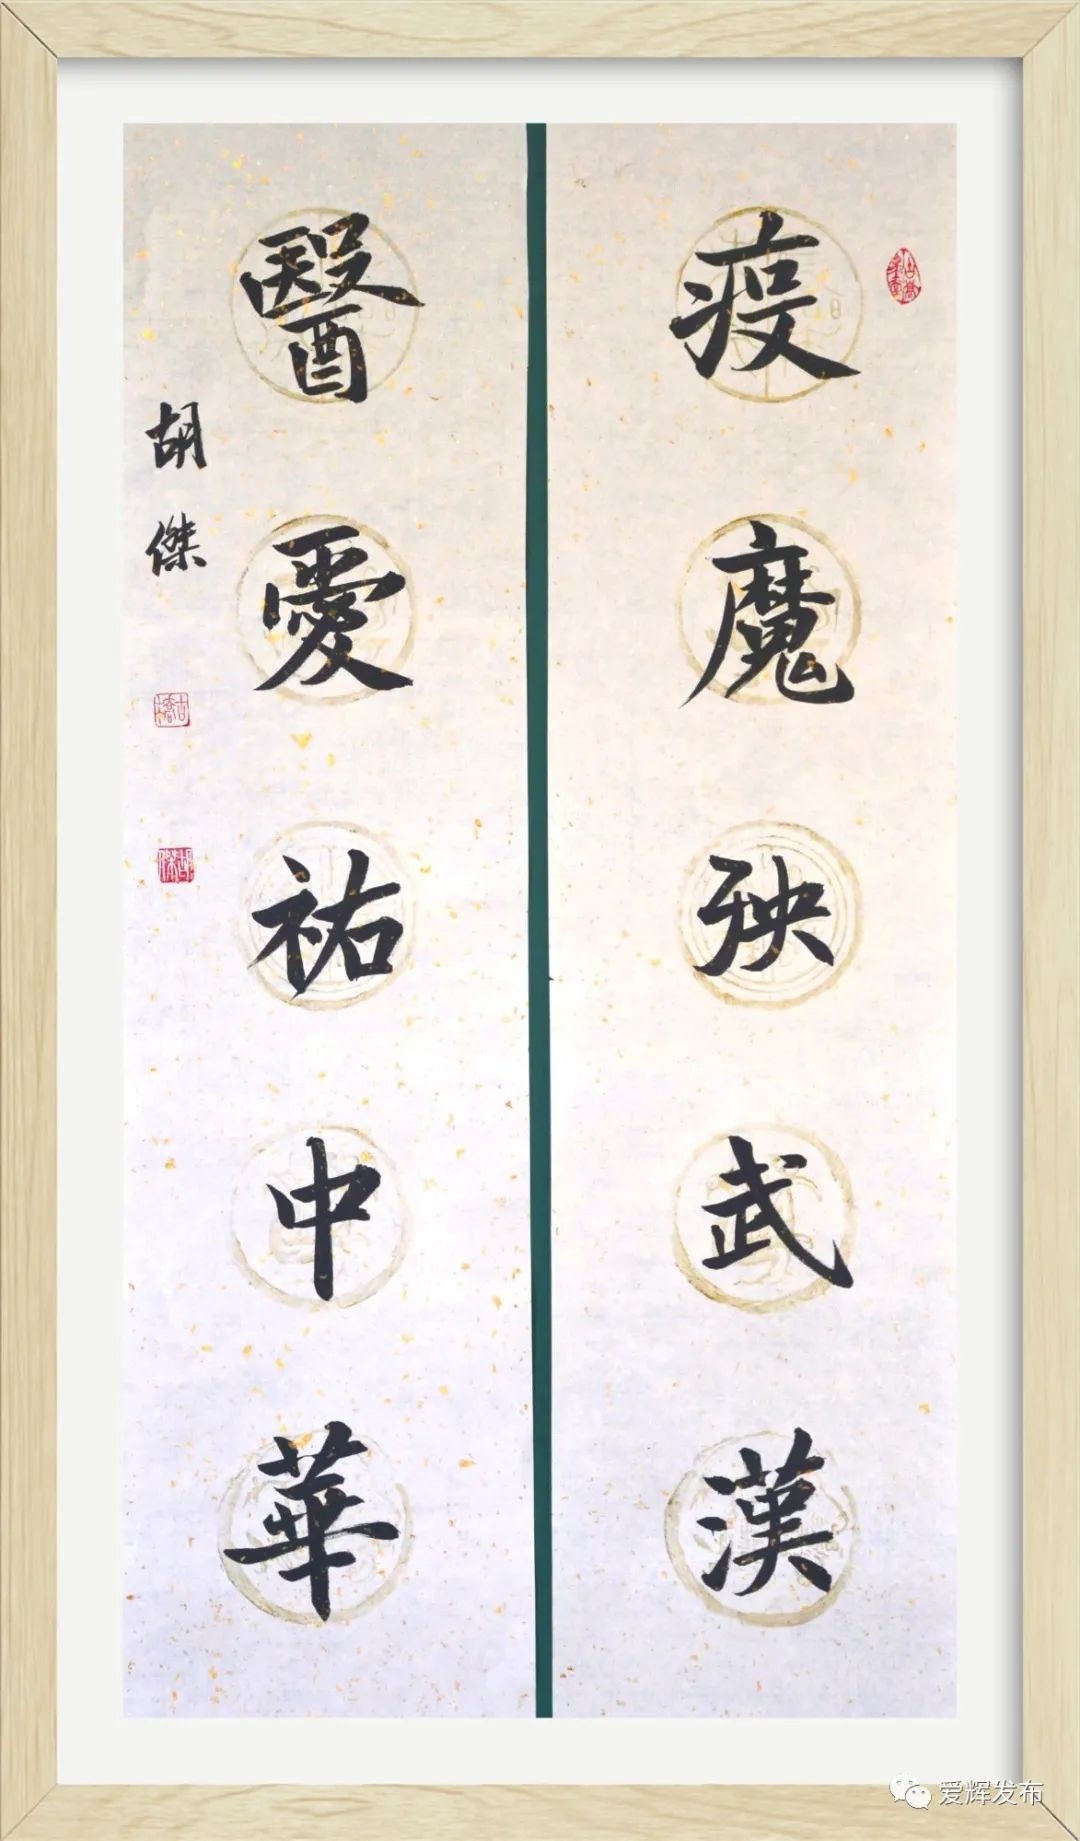 疫魔殃武漢
醫愛祐中華
胡傑
爱辉发布